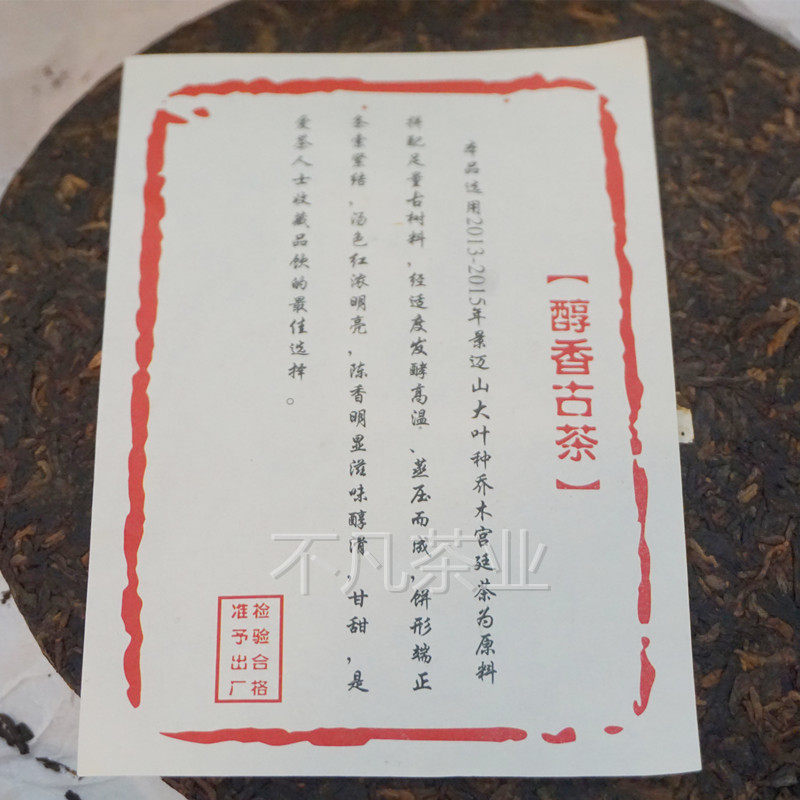 【醇香古茶】
本品选用2013-2015年景迈山大叶种乔木宫廷茶为原料
拼配足量古树料，经适度发酵高温、蒸压而成，饼形端正
条索紧结，汤色红浓明亮，陈香明显滋味醇滑，甘甜，是
爱茶人士收藏品饮的最佳选择。
检验合格
准予出厂
不凡茶业